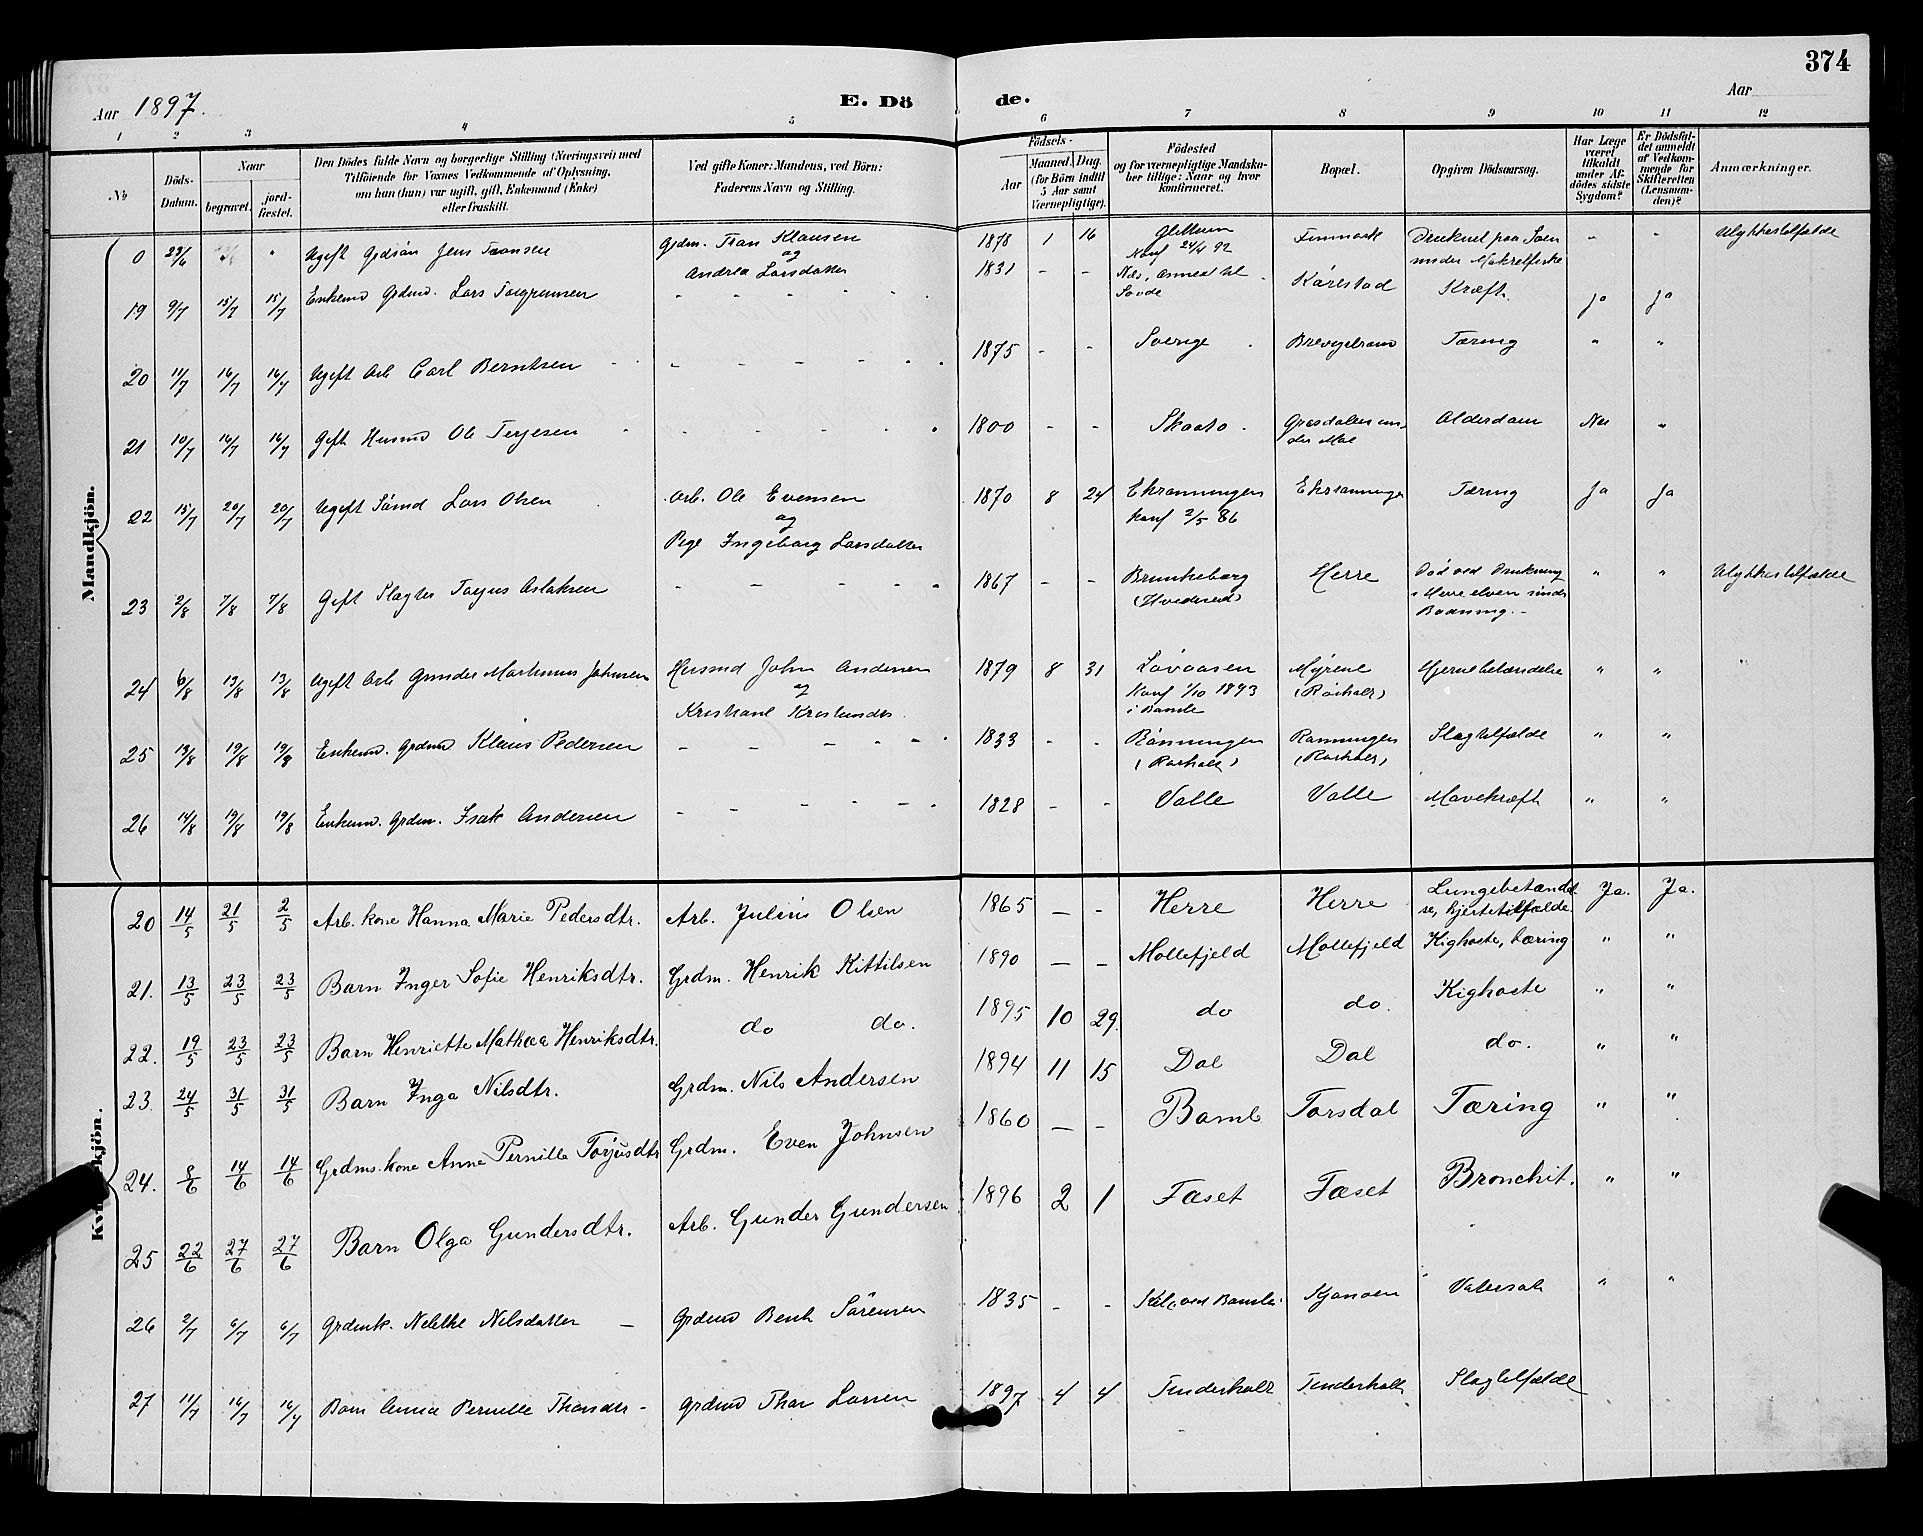 374
Aar 1897.
E. Dö
de.
Aar
1 2 3 4 5 6 7 8 9 10 11 12
No
Döds-Datum.
Naar
begravet.
jord-fæstet.
Den Dödes fulde Navn og borgerlige Stilling (Næringsvei) med
Tilföiende for Voxnes Vedkommende af Oplysning,
om han (hun) var ugift, gift, Enkemand (Enke)
eller fraskilt.
Ved gifte Koner: Mandens, ved Börn:
Faderens Navn og Stilling.
Födsels-
Aar
Maaned. Dag.
(for Börn indtil
5 Aar samt
Værnepligtige).
Födested
og for værnepligtige Mandska-
ber tillige: Naar og hvor
konfirmeret.
Bopæl.
Opgiven Dödsaarsag.
Har Læge
været
tilkaldt
under Af-
dödes sidste
Sygdom?
Er Dödsfal-
det anmeldt
af Vedkom-
mende for
Skifteretten
(Lensman-
den)?
Anmærkninger.
Mandkjön.
0 23/6 " Ugift Grdsön Jens Fransen Grdm. Fran Klausen 1878 1 16 Finmark Druknet paa Söen " " Ulykkestilfælde
og Konf 24/4 92 under Makrelfiske
Andrea Larsdatter
19 9/7 15/7 15/7 Enkemd Grdmd. Lars Torgrimsen 1831 - - Kårestad Kræft. ja ja
20 11/7 16/7 16/7 Ugift Arb Carl Berntsen 1875 - - Sverige Tæring " "
21 10/7 16/7 16/7 Gift Husmd Ole Terjesen 1800 - - Skaatö Alderdom Nei "
22 15/7 20/7 20/7 Ugift Sömd Lars Olsen Arb. Ole Evensen 1870 8 24 Ekranningen Ekranningen Tæring Ja Ja
og Konf 2/5 86
Pige Ingeborg Larsdatter
23 2/8 7/8 7/8 Gift Slagter Torjus Aslaksen 1867 - - Brunkeberg Herre Död ved Drukning " " Ulykkestilfælde
(Hvideseid) i Herre elven under
Badning.-
24 6/8 13/8 13/8 Ugift Arb Gunder Martinius Johnsen Husmd John Andersen 1879 8 31 Lövaasen Myrene Hjernebetændelse " "
og Konf 1/10 1893 (Rörholt)
Kristiane Kristensdtr. i Bamle
25 13/8 19/8 19/8 Enkemd. Grdmd Klaus Pedersen 1833 - - Rönningen Rönningen Slagtilfælde " "
(Rörholt) (Rörholt)
26 14/8 19/8 19/8 Enkemd. Grdm. Isak Andersen 1828 - - Valle Valle Mavekræft " "
Kvindekjön.
20 14/5 21/5 2/5 Arb. kone Hanna Marie Pedersdtr. Arb. Julius Olsen 1865 - - Herre Herre Lungebetændel- Ja. Ja.
se, hjertetilfælde
21. 13/5 23/5 23/5 Barn Inger Sofie Henriksdtr. Grdm. Henrik Kittilsen 1890 - - Mollefjeld Mollefjeld Kighoste, tæring " "
22. 19/5 23/5 23/5 Barn Henriette Mathea Henriksdtr. do do. 1895 10 29. do do. Kighoste " "
23. 24/5 31/5 31/5 Barn Inga Nilsdtr. Grdm. Nils Andersen 1894 11 15 Dal Dal do. " "
24. 8/6 14/6 14/6 Grdms. kone Anne Pernille Torjusdtr Grdm. Even Johnsen 1860 - - Bamle Torsdal Tæring " "
25 22/6 27/6 27/6 Barn Olga Gundersdtr. Arb. Gunder Gundersen 1896 2 1 Fæset Fæset Bronchit. " "
26 2/7 6/7 6/7 Grdmk. Nilsdatter - Grdmd Bent Sörensen 1835 - - " "
27 11/7 16/7 16/7 Barn Pernille Thorsdtr - Grdmd Thor Larsen 1897 4 4 Tinderholt Tinderholt Slagtilfælde